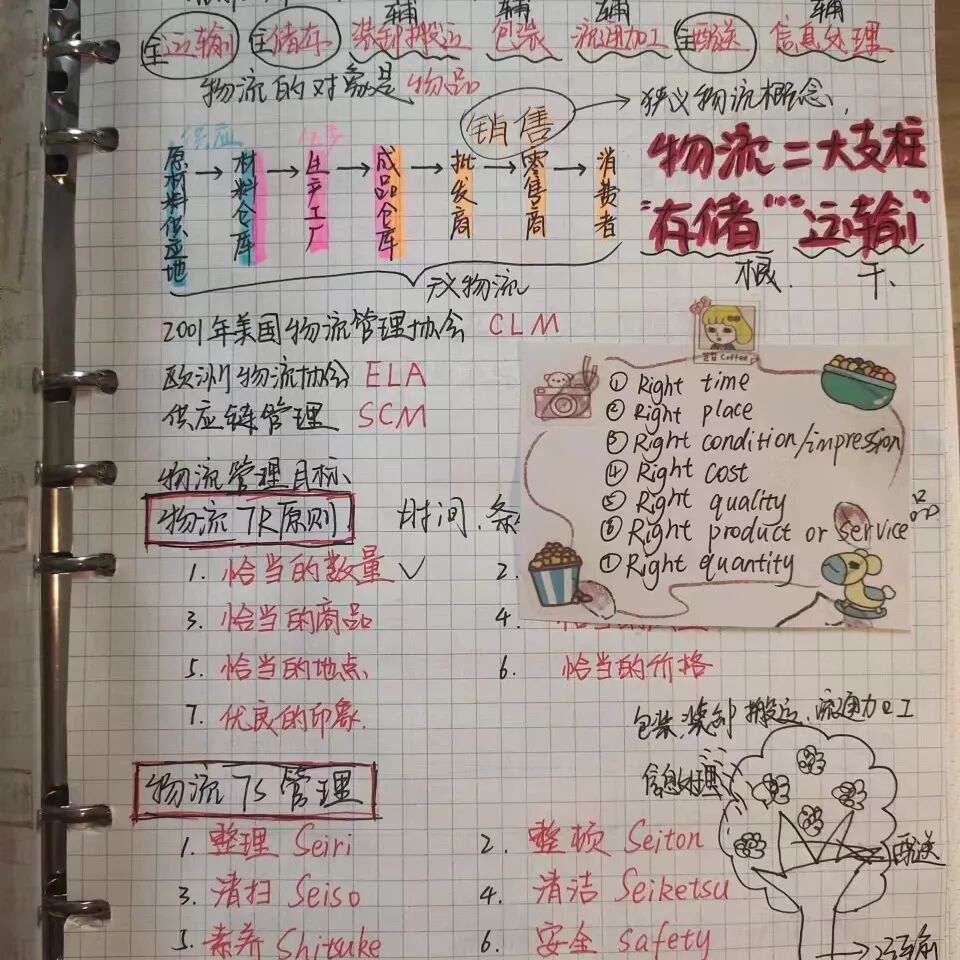 辅 辅 辅 辅
主运输 主储存 装卸搬运 包装 流通加工 主配送 信息处理
物流的对象是物品
销售 → 狭义物流概念
供应
原材料供应地 → 材料仓库 → 生产工厂 → 成品仓库 → 批发商 → 零售商 → 消费者
物流二大支柱
"存储" "运输"
根. 干.
物流
2001年美国物流管理协会 CLM
欧洲物流协会 ELA
供应链管理 SCM
Coffee
① Right time
② Right place
③ Right condition/impression
④ Right cost
⑤ Right quality
⑥ Right product or service
① Right quantity
物流管理目标
物流7R原则 时间、条
品
1. 恰当的数量 ✓ 2.
3. 恰当的商品 4.
5. 恰当的地点 6. 恰当的价格
7. 优良的印象.
包装、装卸搬运、流通加工
信息处理
配送
→运输
物流7S管理
1. 整理 Seiri 2. 整顿 Seiton
3. 清扫 Seiso 4. 清洁 Seiketsu
5. 素养 Shitsuke 6. 安全 safety